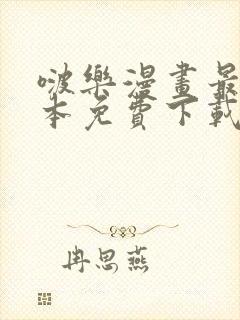 啵樂漫畫最
本免費下載
冉思燕